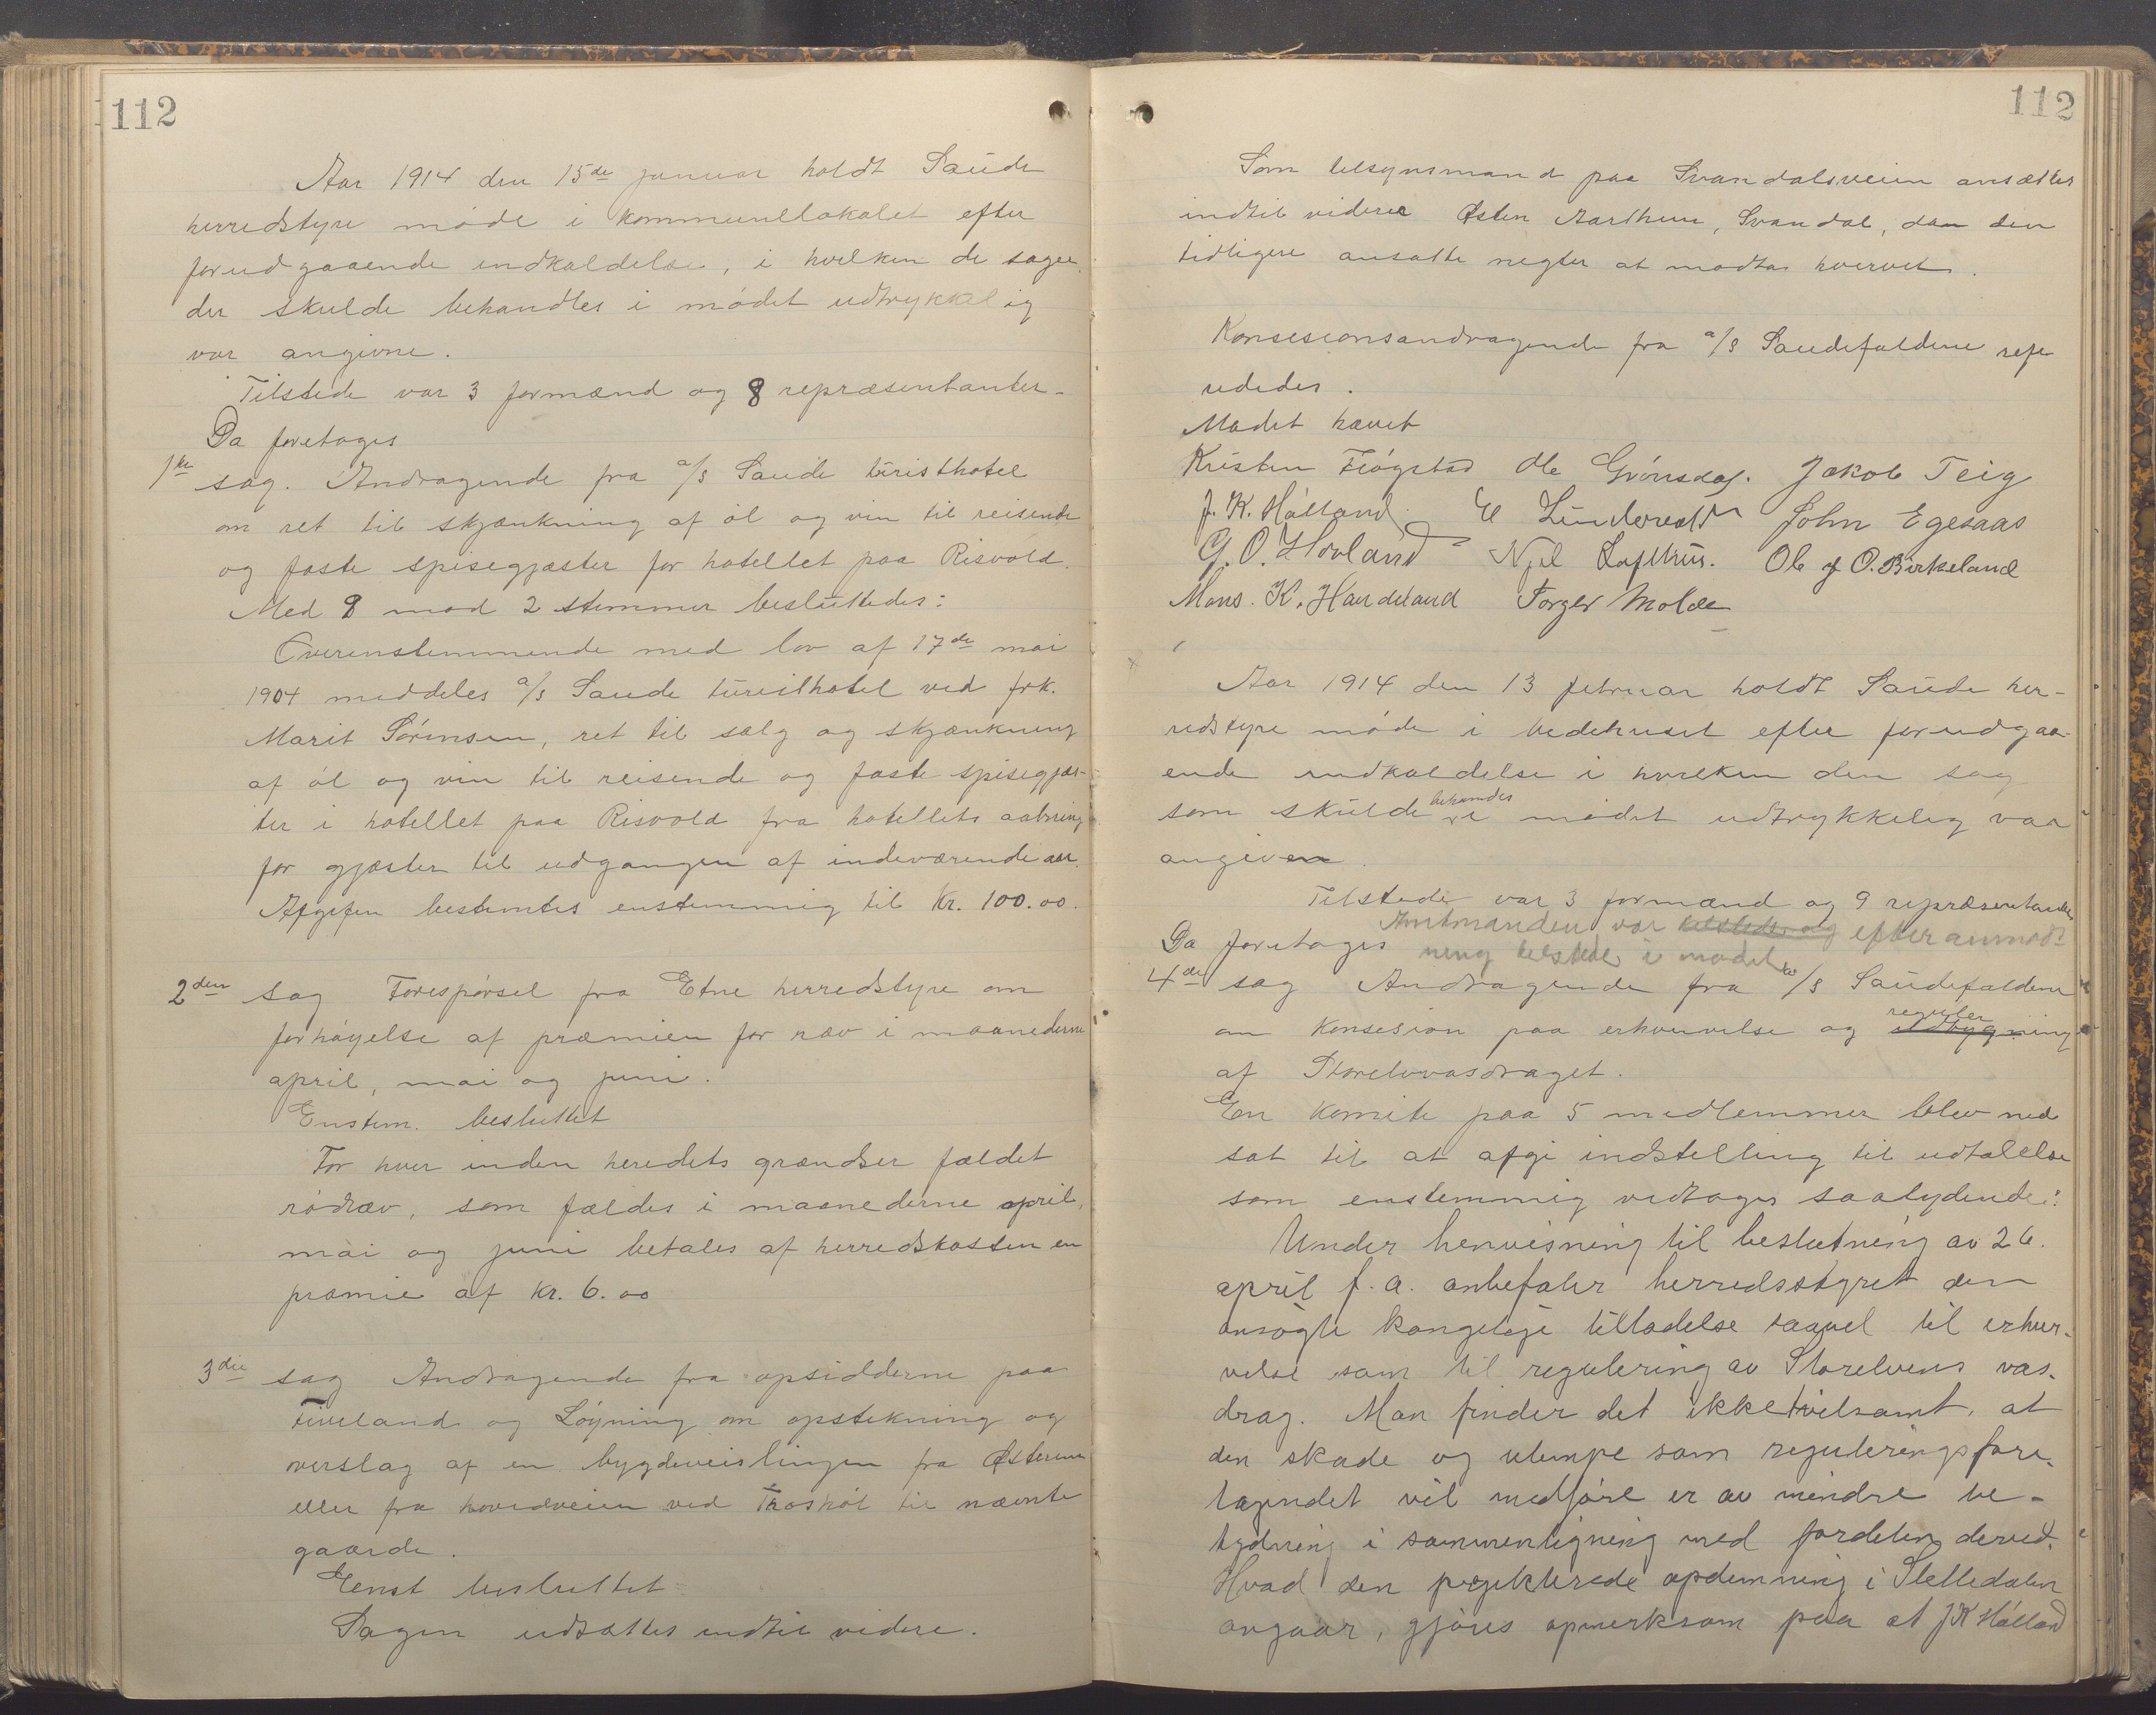 112
Aar 1914 den 15de januar holdt Saude
herredstyre møde i kommunelokalet efter
forudgaaende indkaldelse, i hvilken de sager
der skulde behandles i mødet udtrykkelig
var angivne.
Tilstede var 3 formænd og 8 repræsentanter.
Da foretoges
1ste sag. Andragende fra a/s Saude turisthotel
om ret til skjænkning af øl og vin til reisende
og faste spisegjæster for hotellet paa Risvold.
Med 9 mod 2 stemmer besluttedes:
Overenstemmende med lov af 17de mai
1904 meddeles a/s Saude turisthotel ved frk.
Marit Sørensen, ret til salg og skjænkning
af øl og vin til reisende og faste spisegjæs-
ter i hotellet paa Risvold fra hotellets aabning
for gjæster til udgangen af indeværende aar.
Afgifen bestemtes enstemmig til Kr. 100.00.
2den sag Forespørsel fra Etne herredstyre om
forhøyelse af præmien for ræv i maanederne
april, mai og juni.
Enstem. besluttet
For hver inden heredets grændser fældet
rødræv, som fældes i maanederne april,
mai og juni betales af herredskassen en
præmie af Kr. 6.00
3die sag Andragende fra opsidderne paa
Fiveland og Løyning om opstikning og
overslag af en bygdeveislingen fra Østerem
eller fra hovedveien ved Traskøl til nævnte
gaarde.
Eenst besluttet
Sagen udsættes indtil videre.
112
Som tilsynsmand paa Svandalsveien ansættes
indtil videre Østen Aarthun, Svandal, da den
tidligere ansatte negter at modta hvervet.
Konsesionsandragende fra a/s Saudefaldene refe
rededes.
Mødet hævet
Kristen Fløgstad Ole Grønsdal. Jakob Teig
J. K. Hålland E Lundevold John Egesaas
G. O. Hovland Njel Lofthus. Ole J O. Birkeland
Mons. K. Handeland Torger Molde
Aar 1914 den 13 februar holdt Saude her-
redstyre møde i bedehuset efter forudgaa-
ende indkaldelse i hvilken den sag
som skulde behandles i mødet udtrykkelig var
angiven.
Tilstede var 3 formænd og 9 repræsentanter
Amtmanden var tilstede og efter anmod-
ning tilstede i mødet
Da foretoges
4de sag Andragende fra a/s Saudefaldene
om Konsesion paa erhvervelse og udbygning reguler
af Storelvvasdraget.
En Komite paa 5 medlemmer blev ned
sat til at afgi indstelling til udtalelse
som enstemmig vedtoges saalydende:
Under henvisning til beslutning av 26.
april f. a. anbefaler herredsstyret den
ansøgte kongelige tilladelse saavel til erhver-
velse som til regulering av Storelvens vas-
drag. Man finder det ikke tvilsamt, at
den skade og ulempe som reguleringsfore-
tagendet vil medføre er av mindre be-
tydning i sammenligning med fordelen derved.
Hvad den projekterede opdemning i Slettedalen
angaar, gjøres opmerksom paa at J K Hålland